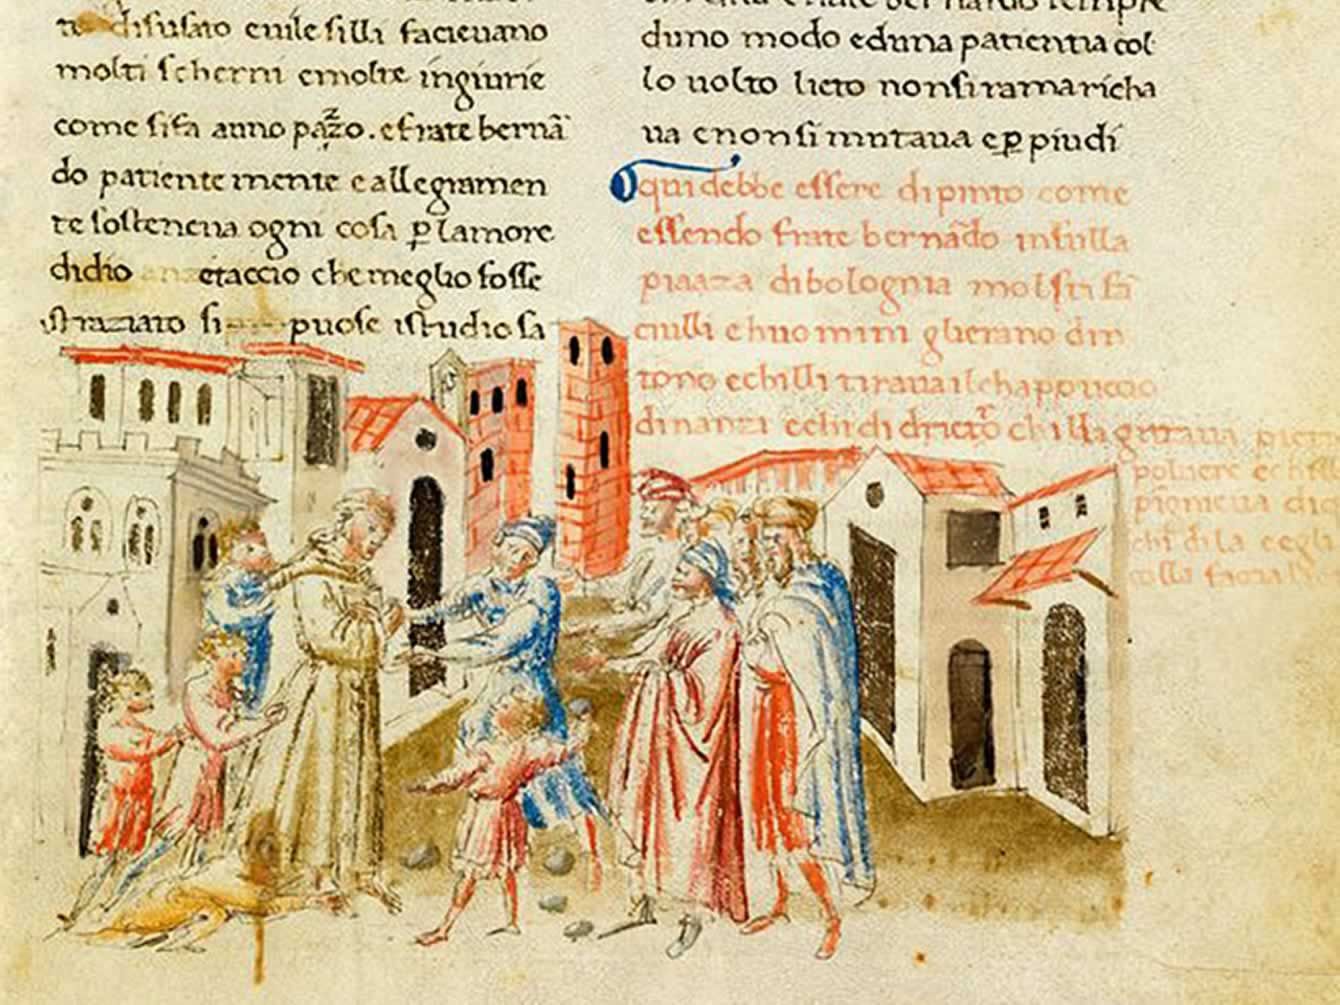 disusato euile silli facieuano
molti scherni emolte ingiurie
come sifa auno pazo. efrate bernā
do patiente mente eallegramen
te sosteneua ogni cosa p̲ lamore
didio etaccio chemeglio fosse
istraziato si puose istudiosa
duno modo eduna patientia col
lo uolto lieto nonsiramaricha
ua enonsi mutaua ep̲ piudi
qui debbe essere dipinto come
essendo frate bernādo insulla
piazza dibolognia molti fā
ciulli ehuomini glierano din
torno echilli tiraua ilchappuccio
dinanzi echi didrieto chilla gittaua
poluere echilli
chi dila eegli